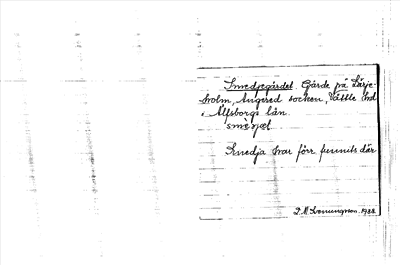 Smedjegärdet. Gärde på Lärje-
holm, Angered socken, Vättle hd
Älfsborgs län.
smejæt
Smedja har förr funnits där
1928.